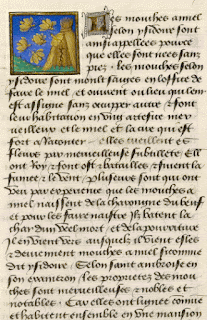 Les mouches a miel
selon ysidore sont
ainsi appellees pource
que elles sont nees sans
piez. les mouches selon
ysidore sont moult saiges en loffice de
faire le miel, et euvrent ou lieu qui leur
est assigne sans occuper autre et font
leur habitation en ung artefice mer
veilleux et le miel et la cire qui est
fort a racompter. elles cueillent es
fleurs par merveilleuse subtillete. Elles
ont roy et font ost, batailles et fuient la
fumee et le vent. Pluseurs sont qui ont
veu par experience que les mouches a
miel naissent de la charongne du beuf
et pour les faire naistre ilz batent la
char dun veel mort, et de la pourreture
Il en vient vers, ausquelz il vient esles
et deviennent mouches a miel sicomme
dit ysidore. Selon saint ambroise en
son exameron, les proprietez des mou
ches sont merveilleuses et nobles et
notables. Car elles ont lignee comme
et habitent ensemble en une mansion